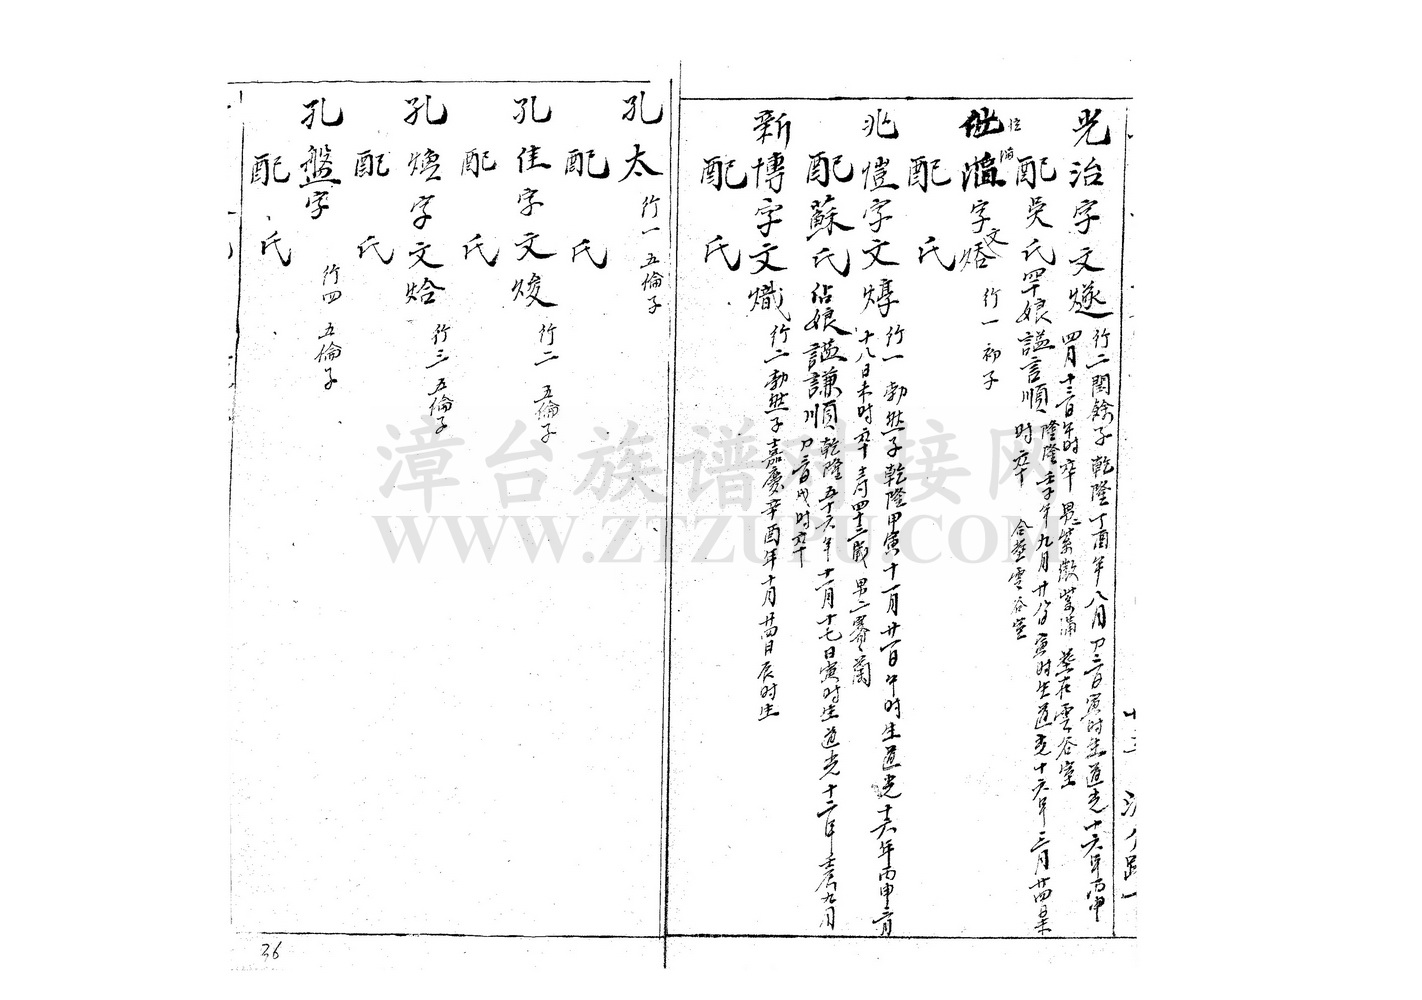 光治字文燧行二閏餘子乾隆丁酉年八月初三日寅时生道光十六年丙申
四月十三日午时卒 男紫微紫滿 葬在雲谷室
配吳氏罕娘謚言順 隆隆壬子年九月廿八日寅时生道光十六年三月廿四日未
时卒 合葬雲谷室
字文焅 行一 初子
配 氏
兆愷字文焞 行一 勃然子乾隆甲寅十一月廿一日午时生道光十六年丙申三月
十八日未时卒 四十三歲 男二 蘭
配蘇氏佔娘謚謙順 乾隆五十六年十一月十七日寅时生道光十二年壬辰九月
初三日戌时卒
新博字文熾 行二勃然子嘉慶辛酉年十月廿四日辰时生
配 氏
孔太 行一 五倫子
配 氏
孔佳字文焌 行二 五倫子
配 氏
孔煥字文烚 行三 五倫子
配 氏
孔盤字 行四 五倫子
配 氏
36
漳台族谱对接网
WWW.ZTZUPU.COM